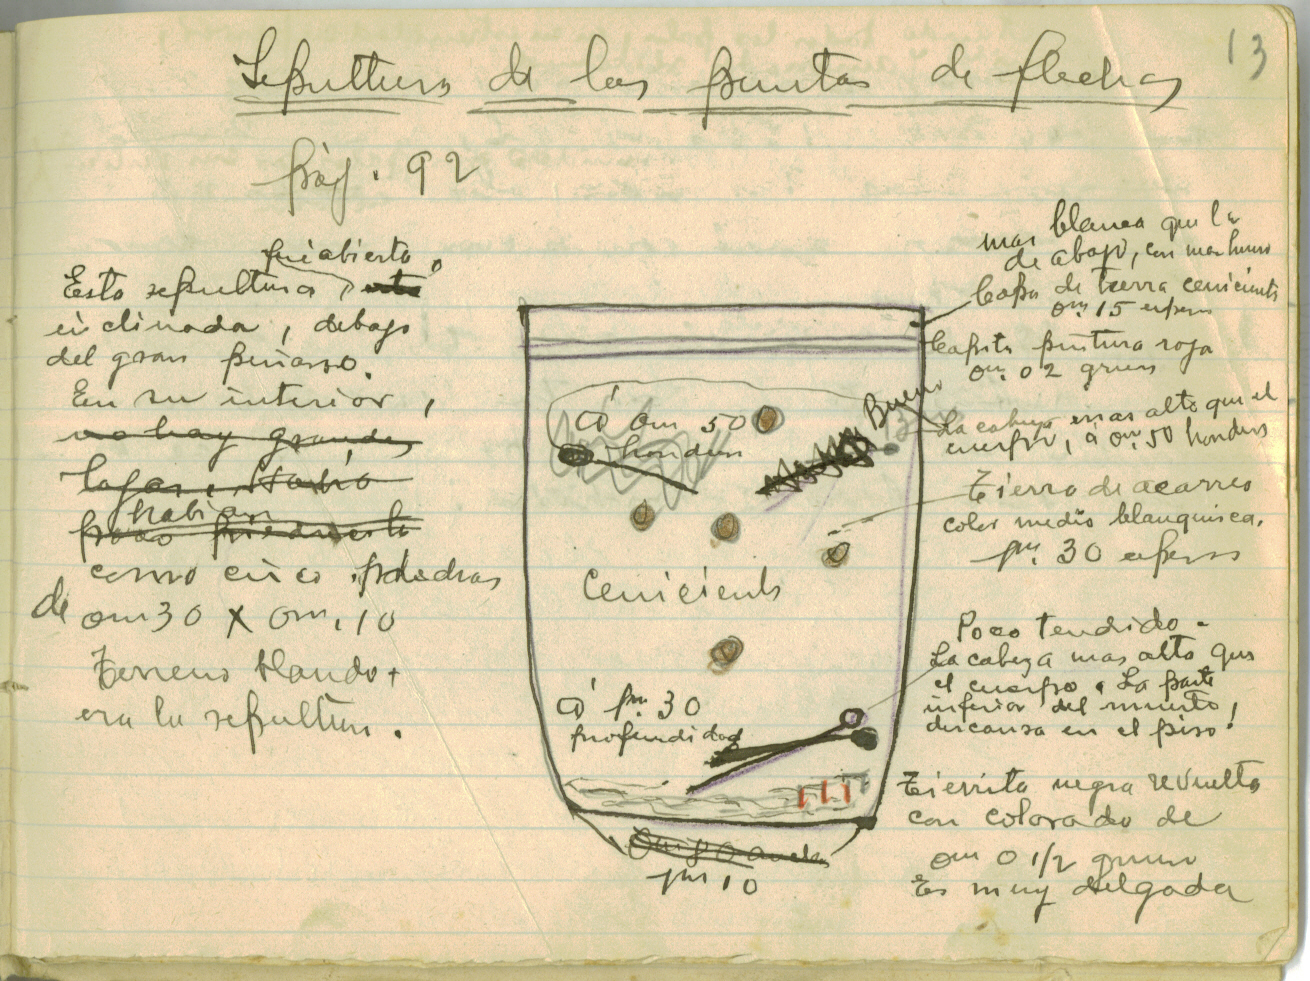 13
Sepultura de las puntas de flechas
pág. 92
fué abierta,
Esta sepultura, está
inclinada, debajo
del gran peñasco.
En su interior,
no hay grandes
lajas. Habia
habian
como cinco piedras
de 0m30 X 0m.10
Terreno blando
era la sepultura.
mas blanca que la
de abajo, con mas humus
Capa de tierra cenicienta
0m.15 espesor
Capita pintura roja
0m.02 grueso
La cabeza mas alto que el
cuerpo, á 0m.50 hondura
Tierra de acarreo
color medio blanquisca.
1m.30 espesor
Poco tendido.
La cabeza mas alto que
el cuerpo. La parte
inferior del muerto,
descansa en el piso.
Tierrita negra revuelta
con colorado de
0m 0 1/2 grueso
Es muy delgada
á 0m 50
hondura
Bueno
13
Cenicienta
Á 1m.30
profundidad
1m 10